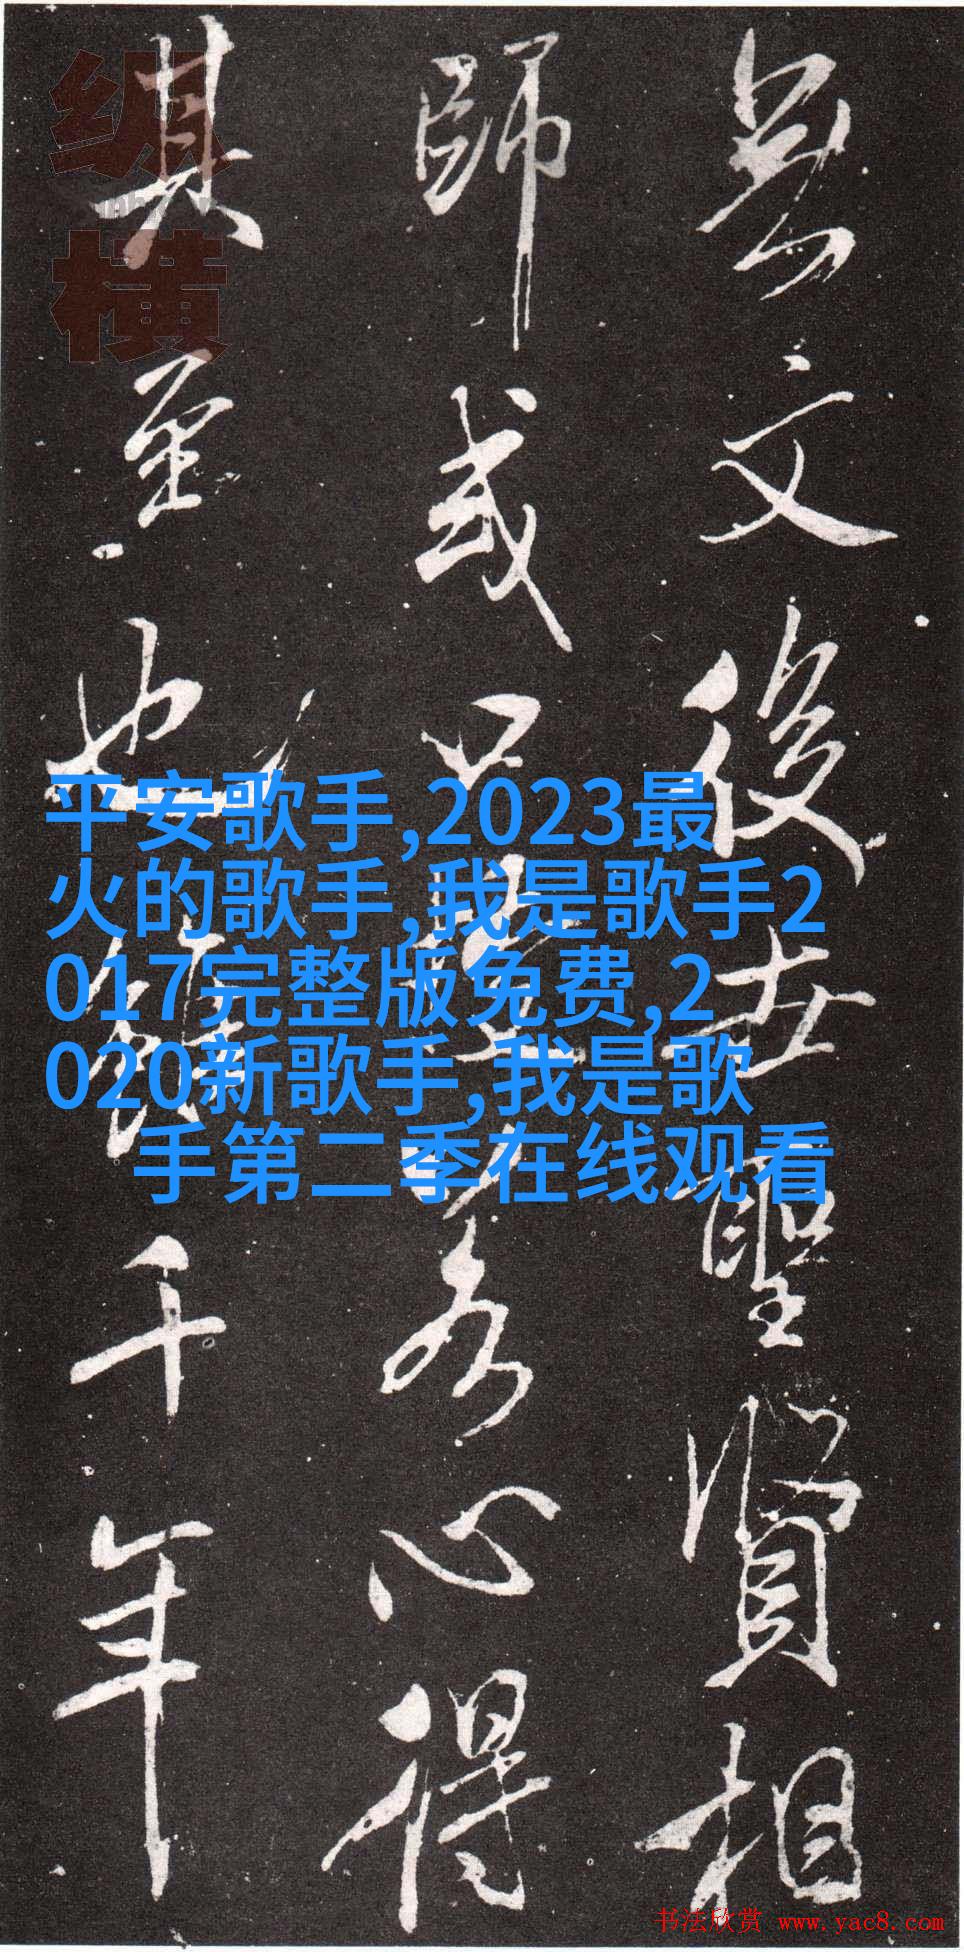 文後世聖賢相
師或心得
其至也雖千年
横
平安歌手,2023最
火的歌手,我是歌手2
017完整版免费,2
020新歌手,我是歌
手第二季在线观看
书法欣赏 www.yac8.com